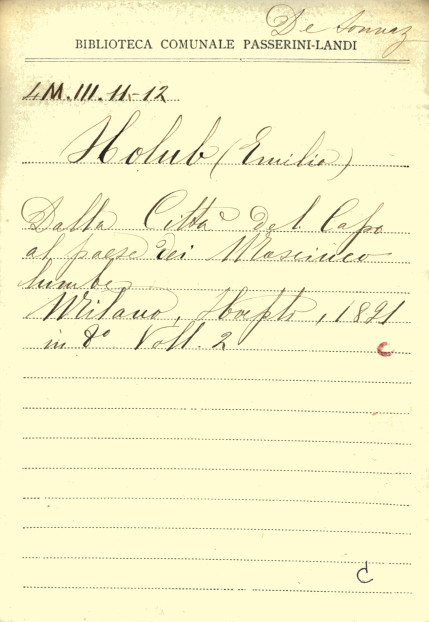 De Sonnaz
BIBLIOTECA COMUNALE PASSERINI-LANDI
4M.III.11-12
Holub (Emilio)
Dalla Città del Capo
al paese dei Masciuco
lumbe
Milano, Hoepli, 1891
in 8° Voll. 2
C
C